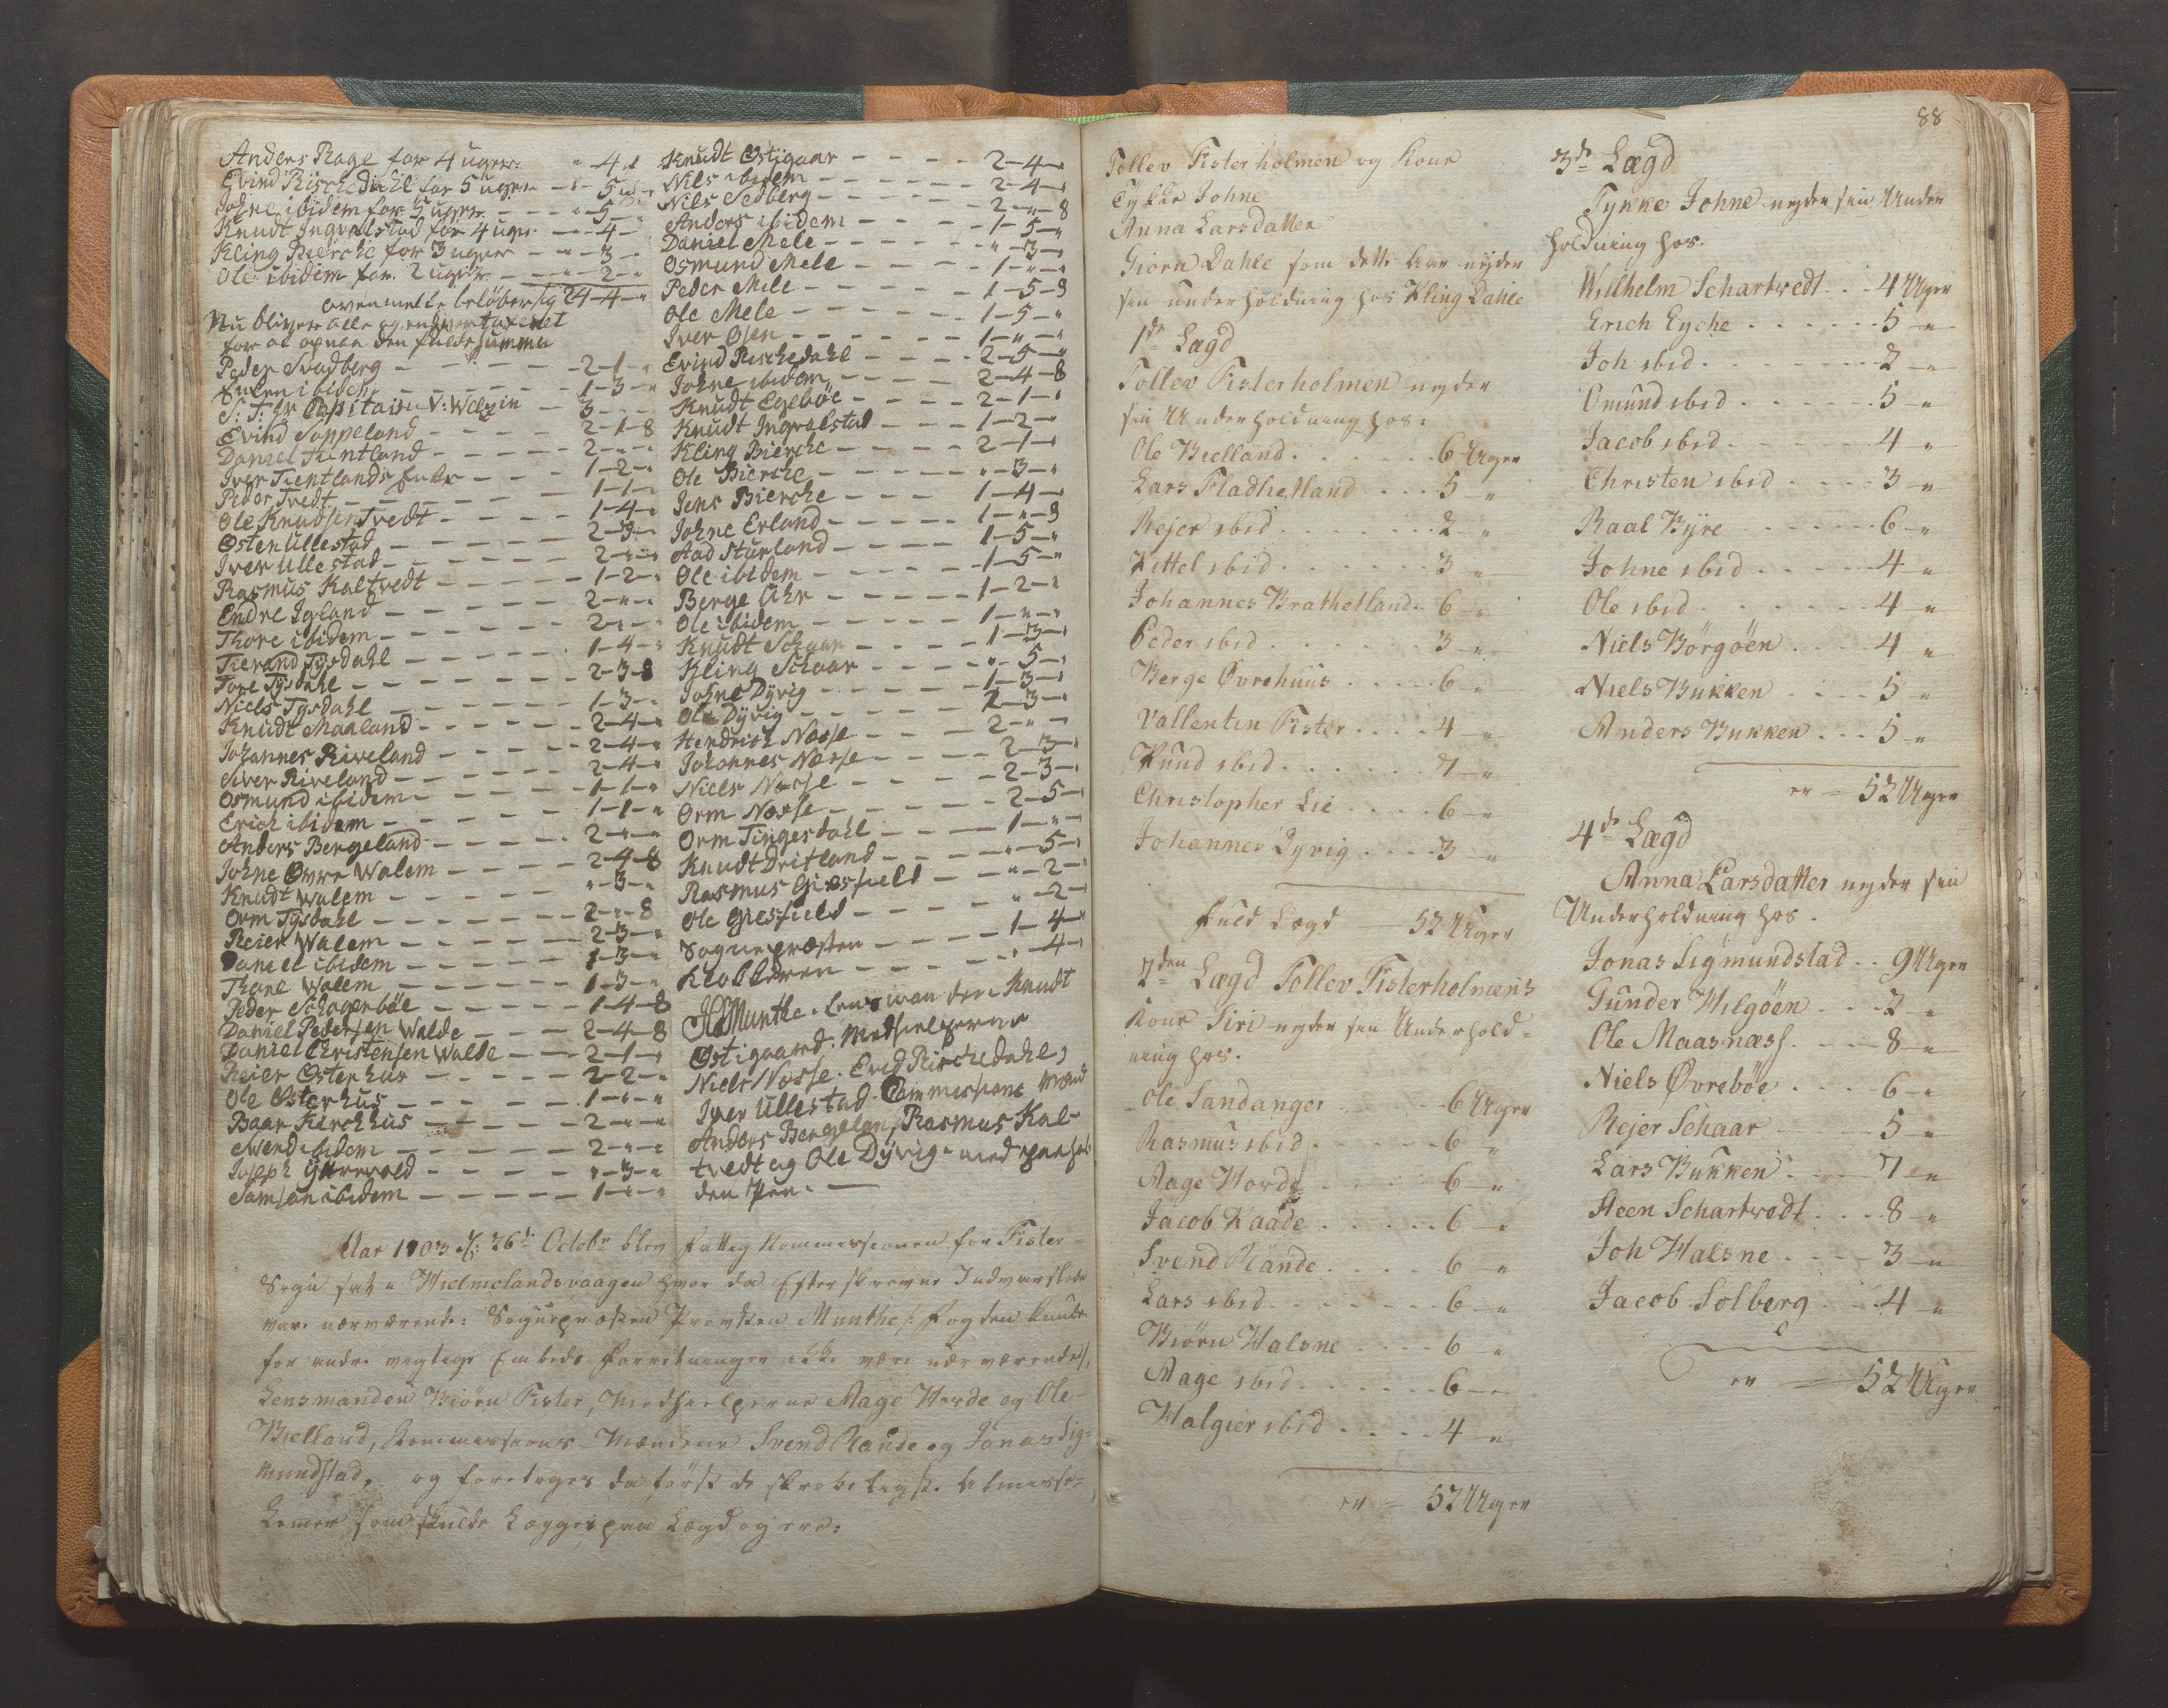 Anders Rage for 4 uger " - 4 -
Evind Rischedahl for 5 uger - " - 5 - "
Johne ibidem for 5 uger - - - " - 5 - "
Knudt Ingvalstad for 4 uger - " - 4 -
Kling Bierche for 3 uger - - " - 3 -
Ole ibidem for 2 uger - - " - 2 - "
ovenmelte beløber sig 24 - 4 - "
Nu bliver alle og enhver taxeret
for at opnaa den fulde summa
Peder Svadberg - - - - - 2 - 1 - "
Enken ibidem - - - - - 1 - 3 - "
S: T: Hr Capitain V: Welzin - 3 - - -
Evind Soppeland - - - - 2 - 1 - 8
Daniel Tientland - - - - 2 - " - "
Iver Tientlands Enke - - 1 - 2 - "
Peder Tvedt - - - - - 1 - 1 - "
Ole Knudsen Tvedt - - - - 1 - 4 - "
Østen Ullestad - - - - - 2 - 3 - "
Iver Ullestad - - - - - 2 - " - "
Rasmus Kaltvedt - - - - 1 - 2 - "
Endre Igland - - - - - 2 - " - "
Thore ibidem - - - - - 2 - " - "
Tierand Tysdahl - - - - 1 - 4 - "
Tore Tysdahl - - - - - 2 - 3 - 8
Niels Tysdahl - - - - - 1 - 3 - "
Knudt Maaland - - - - 2 - 4 - "
Johannes Riveland - - - 2 - 4 - "
Siver Riveland - - - - 2 - 4 - "
Osmund ibidem - - - - 1 - 1 - "
Erich ibidem - - - - - 1 - 1 - "
Anders Bergeland - - - - 2 - " - "
Johne Øvre Walem - - - 2 - 4 - 8
Knudt Walem - - - - " - 3 - "
Orm Tysdahl - - - - - 2 - " - 8
Reier Walem - - - - - 2 - 3 - "
Daniel ibidem - - - - - 1 - 3 - "
Thore Walem - - - - - 1 - 3 - "
Peder Schogerbøe - - - - 1 - 4 - 8
Daniel Pedersen Walde - - 2 - 4 - 8
Daniel Christensen Walde - - 2 - 1 - "
Reier Østerhus - - - - 2 - 2 - "
Ole Østerhus - - - - - 1 - " - "
Baar Kirchhus - - - - 2 - " - "
Svend ibidem - - - - - 2 - " - "
Joseph Ytrevold - - - - " - 3 - "
Samson ibidem - - - - - 1 - " - "
Knudt Østigaar - - - - 2 - 4 - "
Nils ibidem - - - - - 2 - 4 - "
Nils Sedberg - - - - - 2 - " - 8
Anders ibidem - - - - 1 - 5 - "
Daniel Mele - - - - - " - 3 - "
Osmund Mele - - - - 1 - " - "
Peder Mele - - - - - 1 - 5 - 8
Ole Mele - - - - - 1 - 5 - "
Iver Osen - - - - - 1 - " - "
Evind Rischedahl - - - - 2 - 5 - "
Johne ibidem - - - - - 2 - 4 - 8
Knudt Egebøe - - - - 2 - 1 - "
Knudt Ingvalstad - - - 1 - 2 - "
Kling Bierche - - - - 2 - 1 - "
Ole Bierche - - - - - " - 3 - "
Jens Bierche - - - - 1 - 4 - "
Johne Erland - - - - 1 - " - 8
Aad Sturland - - - - 1 - 5 - "
Ole ibidem - - - - - 1 - 5 - "
Berge Ahr - - - - - 1 - 2 - "
Ole ibidem - - - - - 1 - " - "
Knudt Schaar - - - - 1 - 3 - "
Kling Schaar - - - - " - 5 - "
Johne Dyvig - - - - - 1 - 3 - "
Ole Dyvig - - - - - 2 - 3 - "
Hendrich Næsse - - - - 2 - " - "
Johannes Næsse - - - - 2 - 3 - "
Niels Næsse - - - - 2 - 3 - "
Orm Næsse - - - - - 2 - 5 - "
Orm Tingesdahl - - - - 1 - " - "
Knudt Dritland - - - - " - 5 - "
Rasmus Giesfield - - " - 2 - "
Ole Giesfield - - - - " - 2 -
Sognepræsten - - - - 1 - 4 - "
Klokkeren - - - - - " - 4 -
Munthe. Lensmanden Knudt
Østigaard. Medhielperne
Niels Næsse. Evid Rischedahl,
Iver Ullestad. Commissions Mænd
Anders Bergelan, Rasmus Kal-
tvedt og Ole Dyvig. med paahol-
den Pen. —
Aar 1803 d: 26de Octobr blev Fattig Kommissionen for Fister-
Sogn sat i Hielmelandsvaagen hvor da Efterskrevne Indvaanere
vare nærværende: Sognepræsten Provsten Munthe /: Fogden kunde
for andre vigtige Embeds Forretninger ikke være nærværende :/,
Lensmanden Biørn Fister, Medhielperne Aage Horde og Ole
Bielland, Kommissions Mændene Svend Rande og Jonas Sig-
mundstad, og foretoges da først de skrøbeligste Almisse-
Lemer som skulde Lægges paa Lægd og ere:
88
Tollev Fisterholmen og Kone
Tykke Johne
Anna Larsdatter
Giøen Dahle som dette Aar nyder
sin underholdning hos Kling Dahle
1te Lægd
Tollev Fisterholmen nyder
sin Underholdning hos:
Ole Bielland . . . . . . 6 Uger
Lars Fladhetland . . . 5 - "
Rejer ibid . . . . . . 2 - "
Kittel ibid . . . . . . 3 - "
Johannes Brathetland . . 6 - "
Peder ibid . . . . . . 3 - "
Berge Øvrehuus . . . . 6 - "
Vallentin Fister . . . . 4 - "
Knud ibid . . . . . . 7 - "
Christopher Lie . . . . 6 - "
Johannes Dyvig . . . . 3 - "
fuld Lægd — 52 Uger
2den Lægd Tollev Fisterholmens
Kone Siri nyder sin Underhold-
ning hos.
Ole Sandanger . . . 6 Uger
Rasmus ibid . . . . . 6 - "
Aage Horde . . . . . 6 - "
Jacob Kaade . . . . . 6 - "
Svend Rande . . . . 6 - "
Lars ibid . . . . . . 6 - "
Biørn Halsne . . . . 6 - "
Aage ibid . . . . . . 6 - "
Halgier ibid . . . . 4 - "
er = 52 Uger
3de Lægd
Tykke Johne nyder sin Under
holdning hos.
Willhelm Schartvedt . . . 4 Uger
Erich Eyche . . . . . . 5 - "
Joh ibid . . . . . . . 2 - "
Omund ibid . . . . . . 5 - "
Jacob ibid . . . . . . 4 - "
Christen ibid . . . . . 3 - "
Raal Byre . . . . . . 6 - "
Johne ibid . . . . . . 4 - "
Ole ibid . . . . . . . 4 - "
Niels Børgøen . . . . 4 - "
Niels Bukken . . . . 5 - "
Anders Bukken . . . 5 - "
er = 52 Uger
4de Lægd
Anna Larsdatter nyder sin
Underholdning hos.
Jonas Sigmundstad . . 9 Uger
Gunder Helgøen . . . 2 - "
Ole Maasnæss . . . . 8 - "
Niels Øvrebøe . . . 6 - "
Rejer Schaar . . . . 5 - "
Lars Bukken . . . . 7 - "
Steen Schartvedt . . . 8 - "
Joh Halsne . . . . 3 - "
Jacob Solberg . . . 4 - "
er = 52 Uger